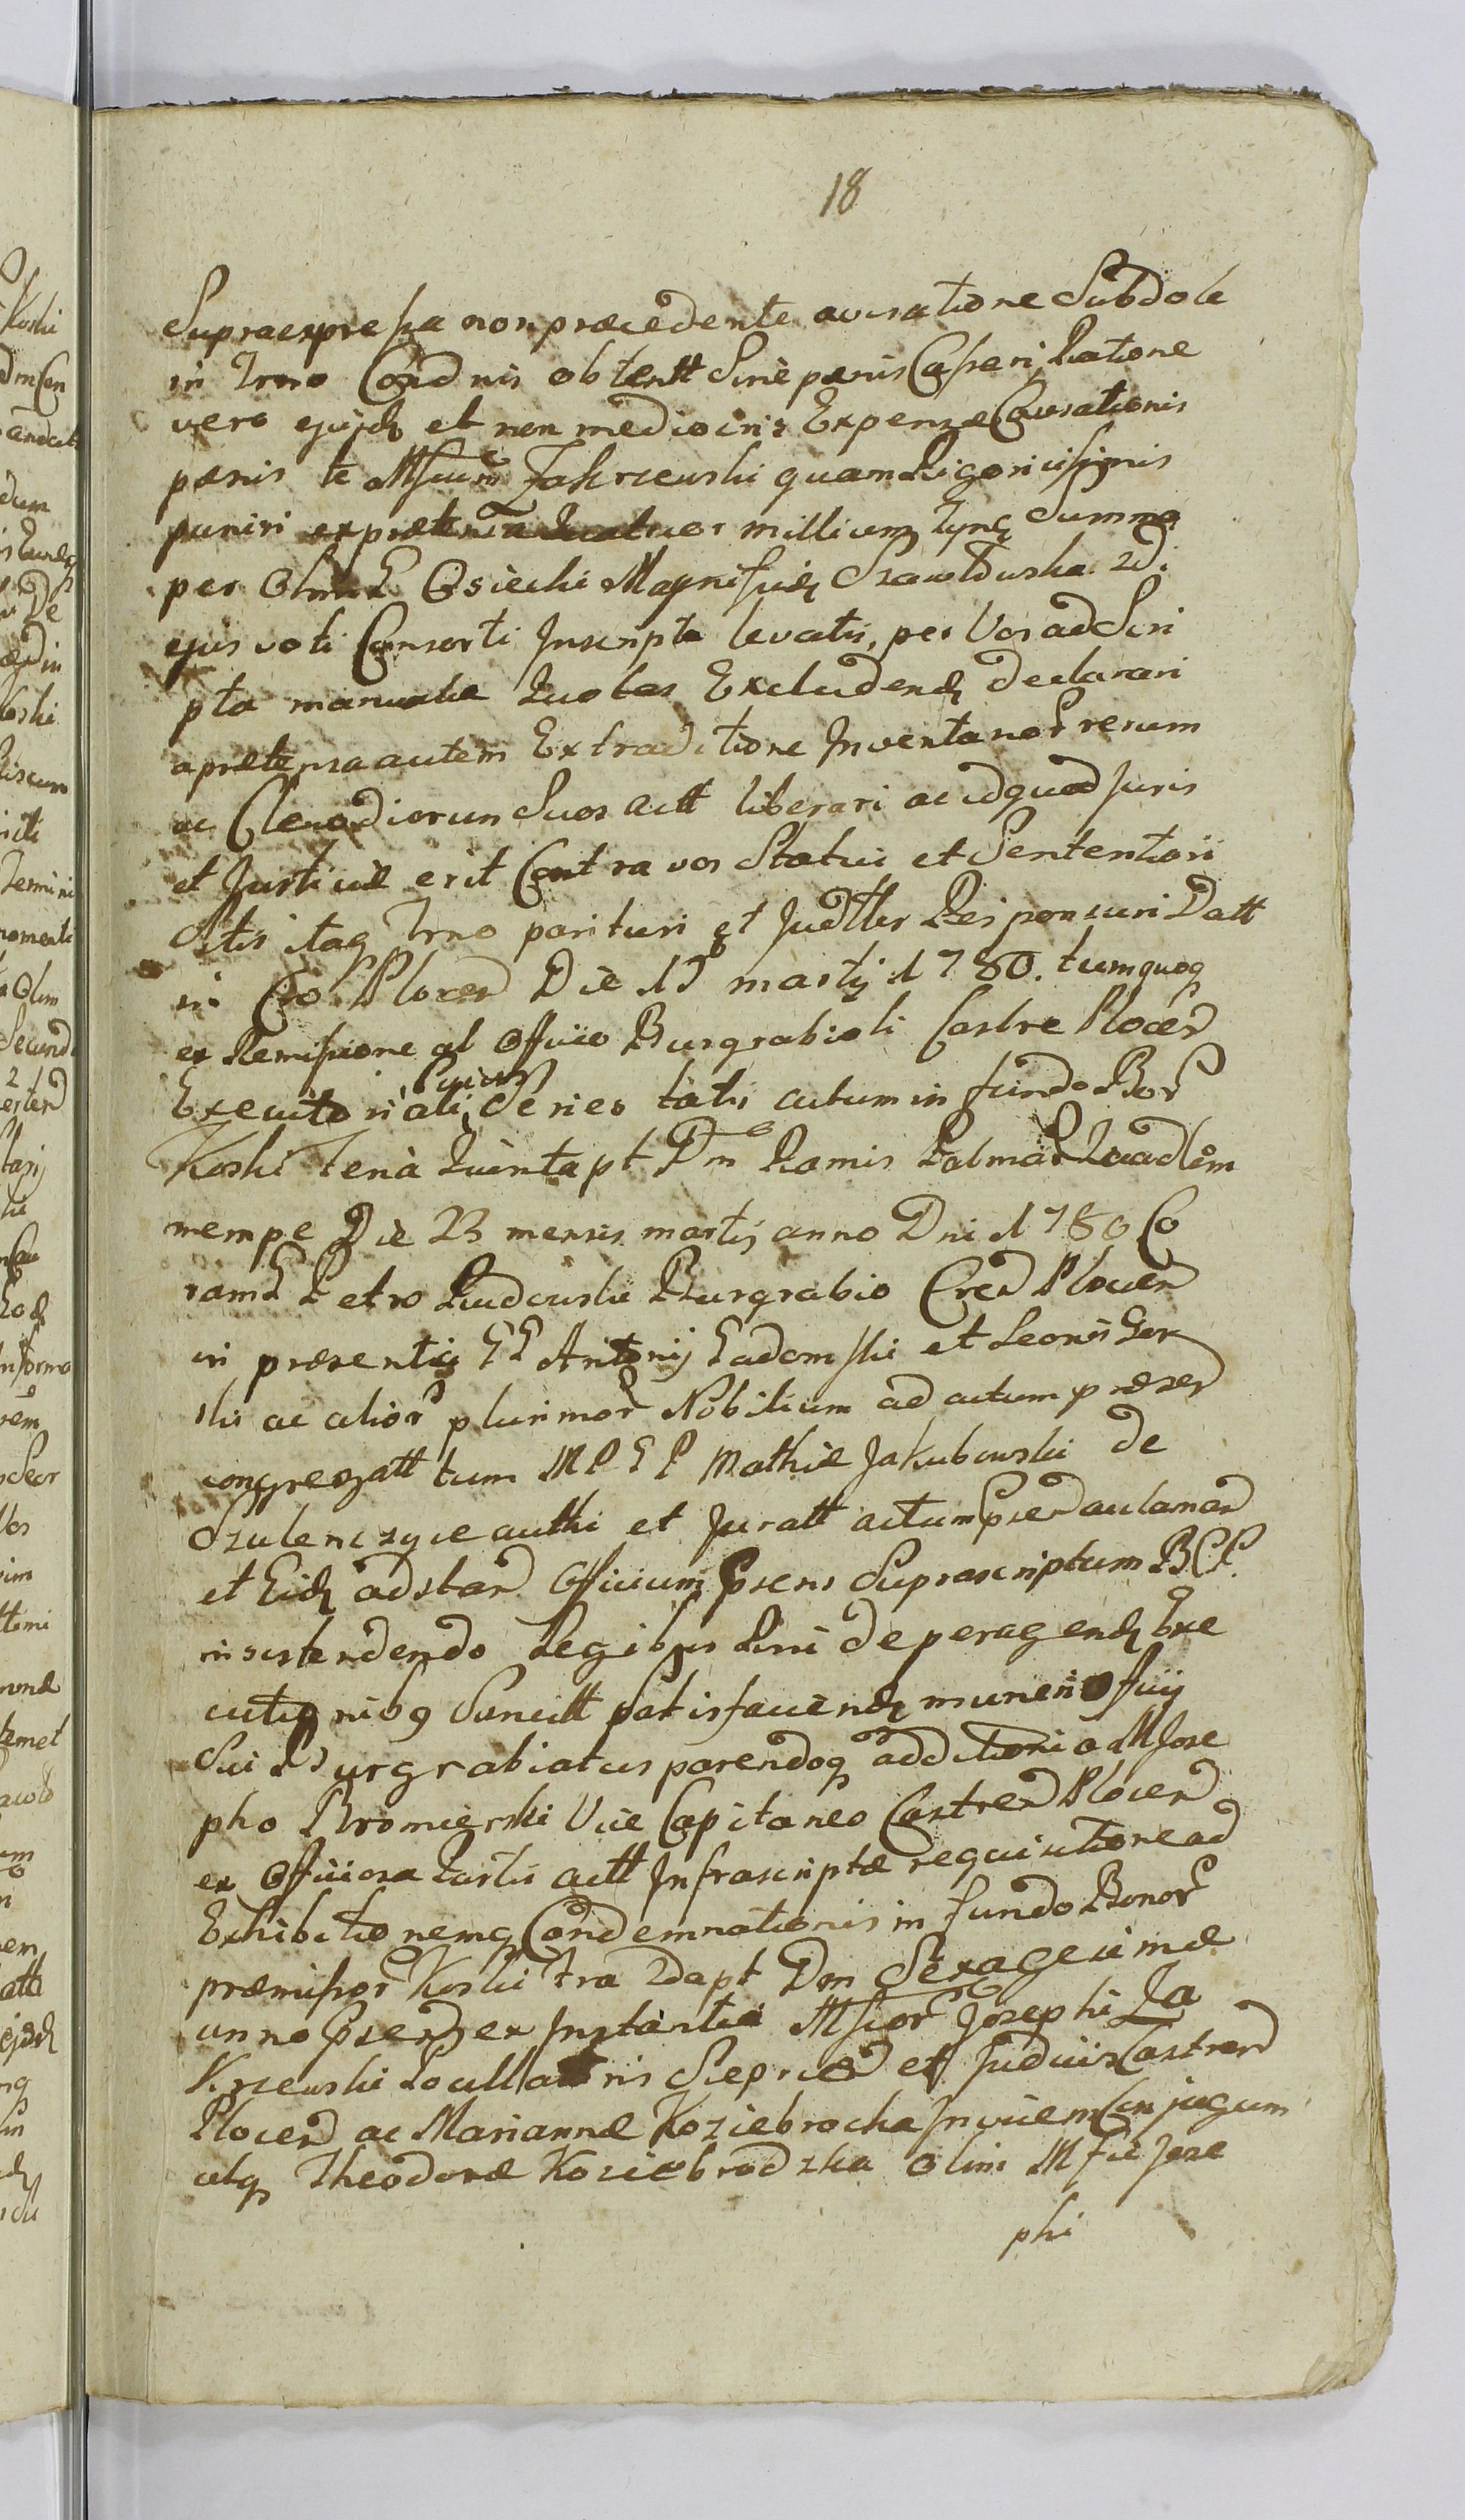 18
Supraexpressa non præcedente accusatione Subdole
in Trno Condnis obtentt Sine pænis Casseri, Ratione
vero ejusd et non mediocris Expenzæ Causationis
pænis te Mfcum Zakrzewski quam Rigorisissimis
puniri ex prætensa Quatuor millium Tynf Summa
per Olim G Osiecki Magnificæ Szawłowska 2di
ejus voti Consorti Inscripta levatis, per Vos ad Scri
pta manualia Quotas Excludend declarari
a prætensa autem Extraditione Inventarior rerum
ac Clenodiorum Suos Actt liberari ac id quod Juris
et Justitiæ erit Contra vos Statui et Sententiari
Sitis itaq Trno parituri et Judlter Responsuri Datt
in Cro Plocen Die 15 martij 1780. tumquoq
ex Remissione ab Officio Burgrabiali Castre Plocen
Executorialis Cujus Series talis actum in fundo Bor
Koski Feria Quinta pt Dm Ramis Palmar Quadlem
nempe Die 23 mensis martij anno Dni 1780 Co
ram G Petro Rudowski Burgrabio Cren Plocen
in præsentia GG Antonij Gadomski et Leonis Gor
ski ac alior plurimor Nobilium ad actum præsen
congregatt tum MPGP Mathiæ Jakubowski de
Szulenczyce authi et Juratt actum Psen aclaman
et Eid adstan Officium Psens Suprascriptum BCP.
insistendendo Legibus Rni de peragend Exe
cutionibq Sancitt satisfaciend muneri Officij
Sui Burgrabiatus parendoq additioni a M Jose
pho Bromierski Vice Capitaneo Castren Plocen
ex Officiosa Partis actt Infrascriptæ requisitione ad
Exhibitionemq Condemnationis in fundo Bonor
præmissor Koski fra 2da pt Dm Sexagesimæ
anno Psen ex Instantia Mfcor Josephi Za
Krzewski Pocillatoris Sieprcen et Judicis Castren
Plocen ac Mariannæ Koziebrocka Invicem Conjugum
atq Theodoræ Koziebrodzka olim Mfci Jose
phi